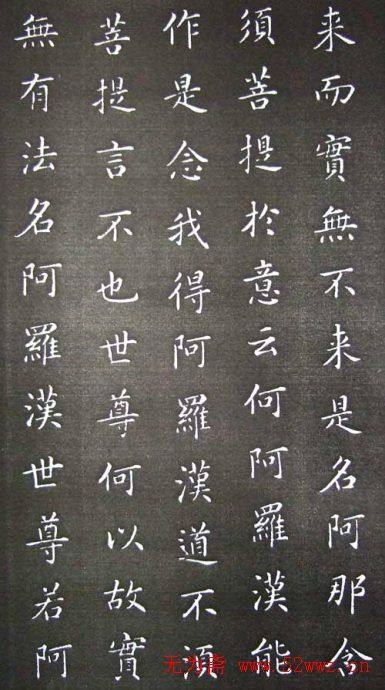 来而實無不来是名阿那含
須菩提於意云何阿羅漢能
作是念我得阿羅漢道不須
菩提言不也世尊何以故實
無有法名阿羅漢世尊若阿
无为斋 www.52wwz.cn